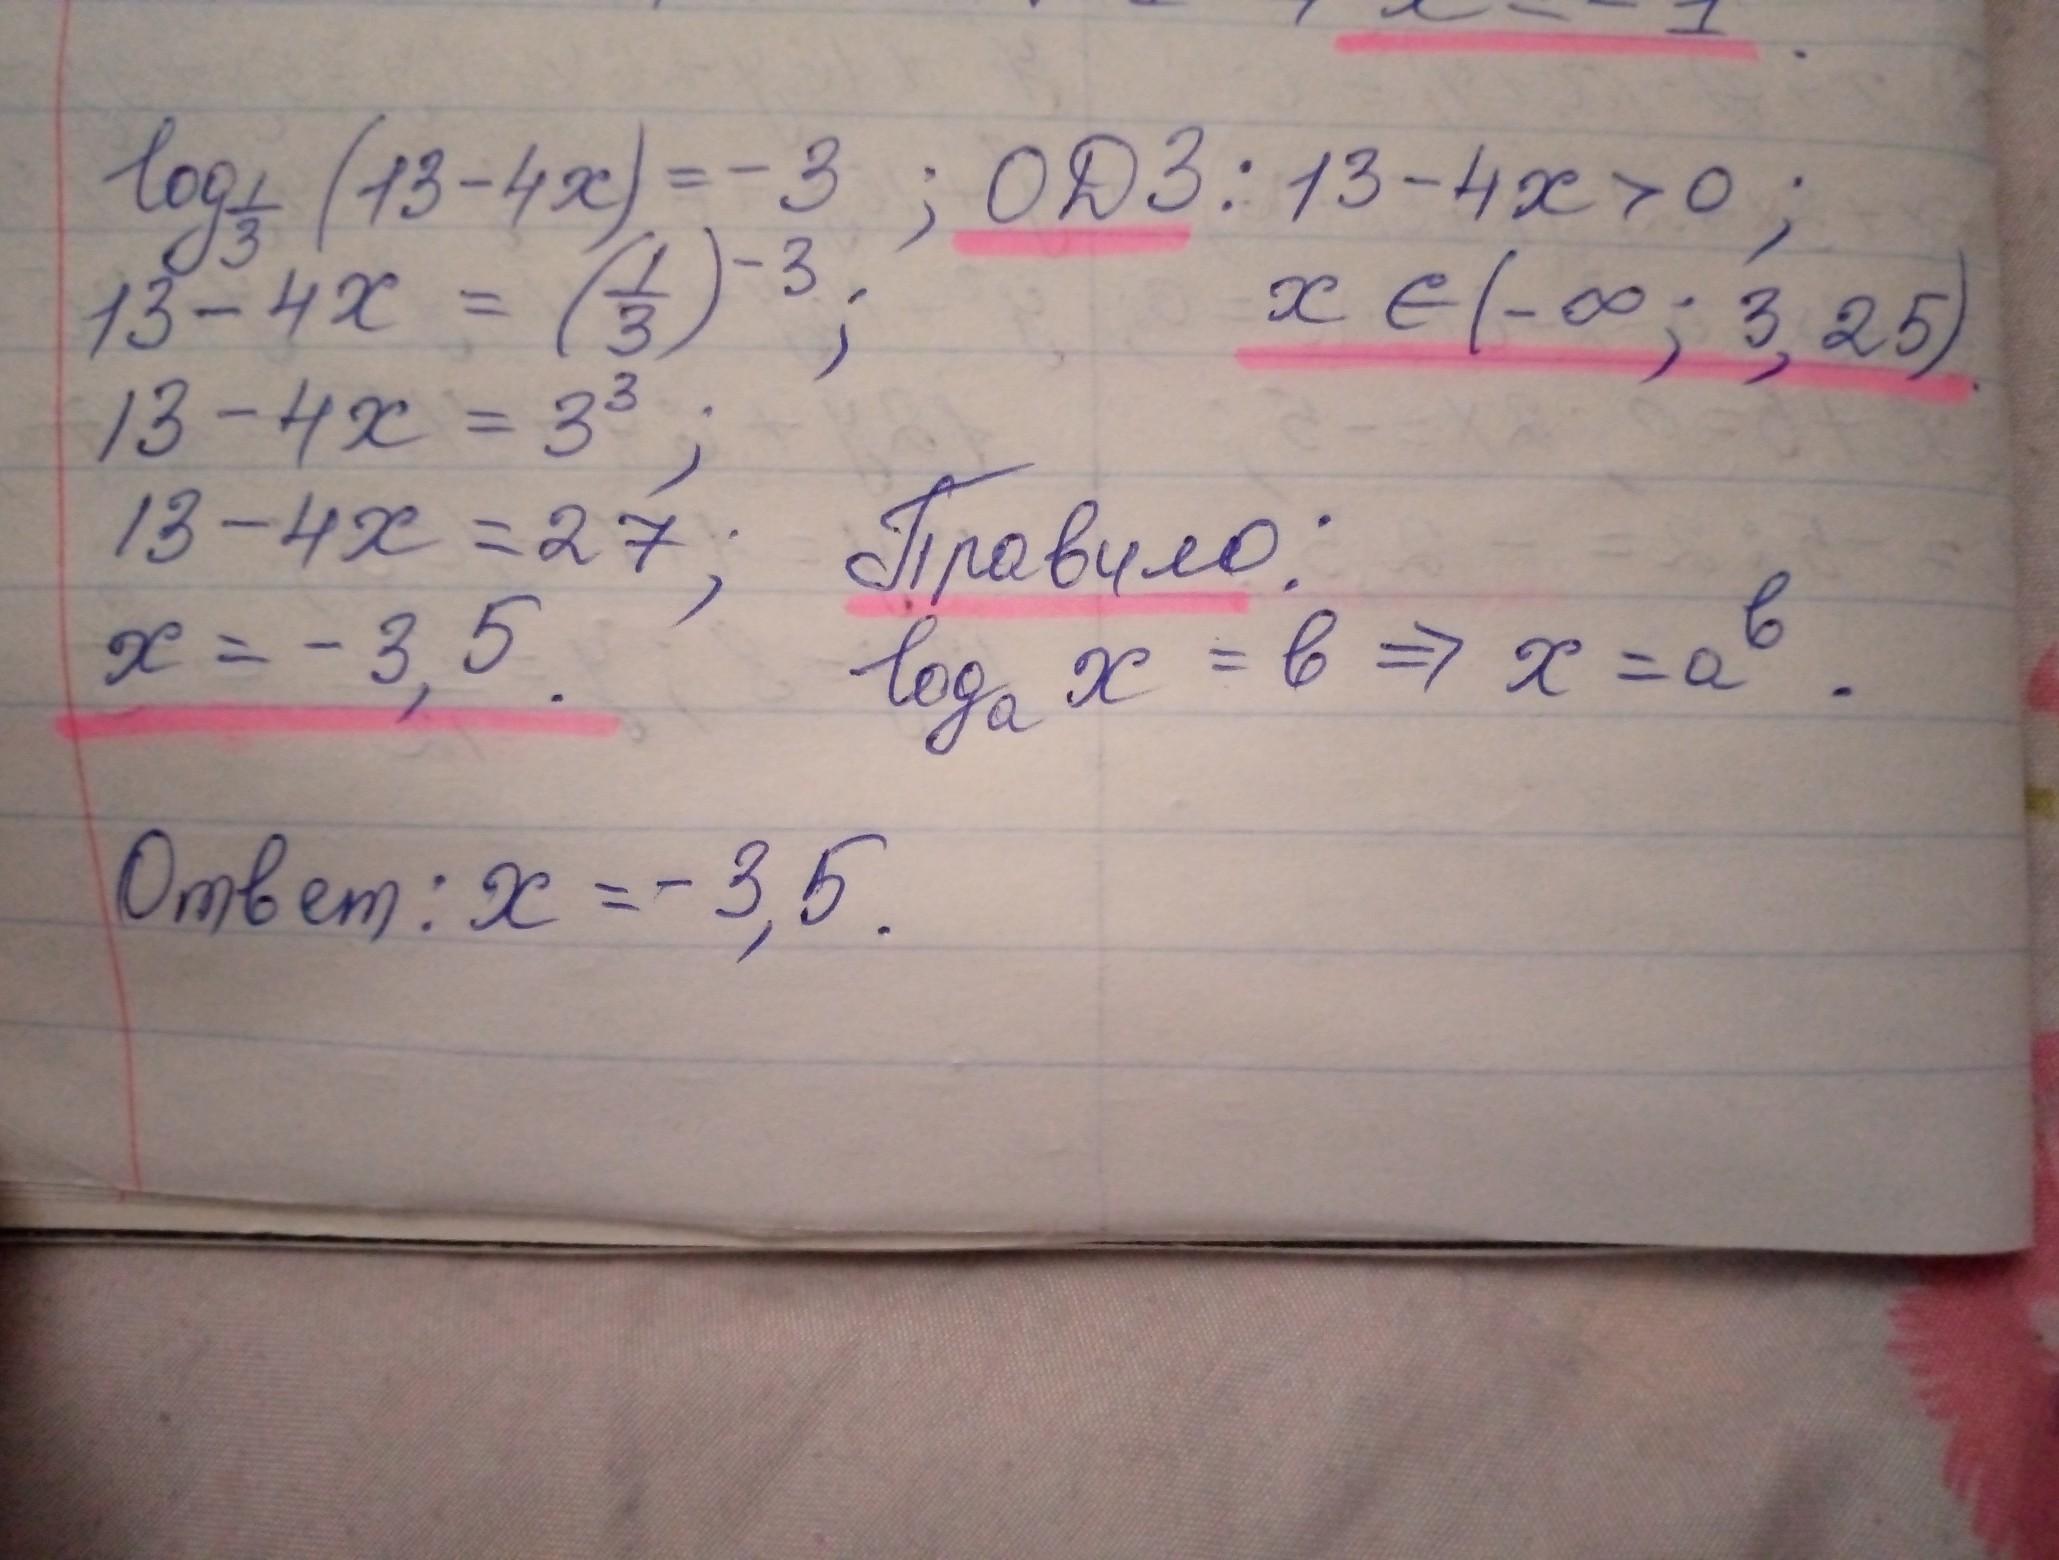 x = -1.
log_{1/3} (13-4x) = -3 ; ОДЗ: 13-4x > 0 ;
13-4x = (1/3)^{-3} ; x ∈ (-∞; 3,25).
13-4x = 3^3 ;
13-4x = 27 ; Правило:
x = -3,5. log_a x = b ⇒ x = a^b.
Ответ: x = -3,5.